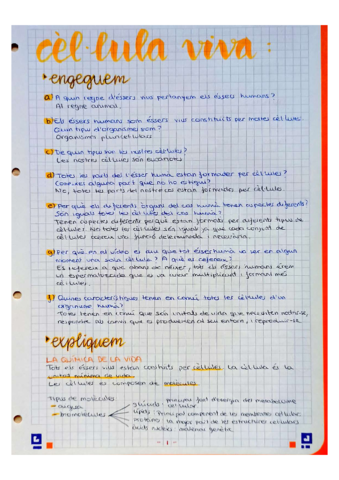 cèl·lula viva:
engeguem
a) A quin regne d'éssers vius pertanyem els éssers humans?
Al regne animal.
b) Els éssers humans som éssers vius constituïts per moltes cèl·lules.
Quin tipus d'organismes som?
Organismes pluricel·lulars.
c) De quin tipus són les nostres cèl·lules?
Les nostres cèl·lules són eucariotes.
d) Totes les parts del l'ésser humà estan formades per cèl·lules?
Coneixes alguna part que no ho estigui?
No, totes les parts del nostre cos estan formades per cèl·lules.
e) Per què els diferents òrgans del cos humà tenen aspectes diferents?
Són iguals totes les cèl·lules del cos humà?
Tenen aspectes diferents perquè estan formats per diferents tipus de
cèl·lules. No totes les cèl·lules són iguals ja que cada conjunt de
cèl·lules tenen una funció determinada i necessària.
g) Per què en el vídeo es diu que tot ésser humà va ser en algun
moment una sola cèl·lula? A què es refereix?
Es refereix a que abans de néixer, tots els éssers humans érem
un espermatozoide que es va anar multiplicant i formant més
cèl·lules.
f) Quines característiques tenen en comú totes les cèl·lules d'un
organisme humà?
Totes tenen en comú que són unitats de vida que necessiten nodrir-se,
respondre als canvis que es produeixen al seu entorn, i reproduir-se.
expliquem
LA QUÍMICA DE LA VIDA
Tots els éssers vius estan constituïts per cèl·lules. La cèl·lula és la
unitat mínima de vida.
Les cèl·lules es componen de molècules.
Tipus de molècules
glúcids: principal font d'energia del metabolisme
cel·lular.
biomolècules
lípids: Principal component de les membranes cel·lulars.
proteïnes: la major part de les estructures cel·lulars
àcids nucleics: material genètic.
- 1 -